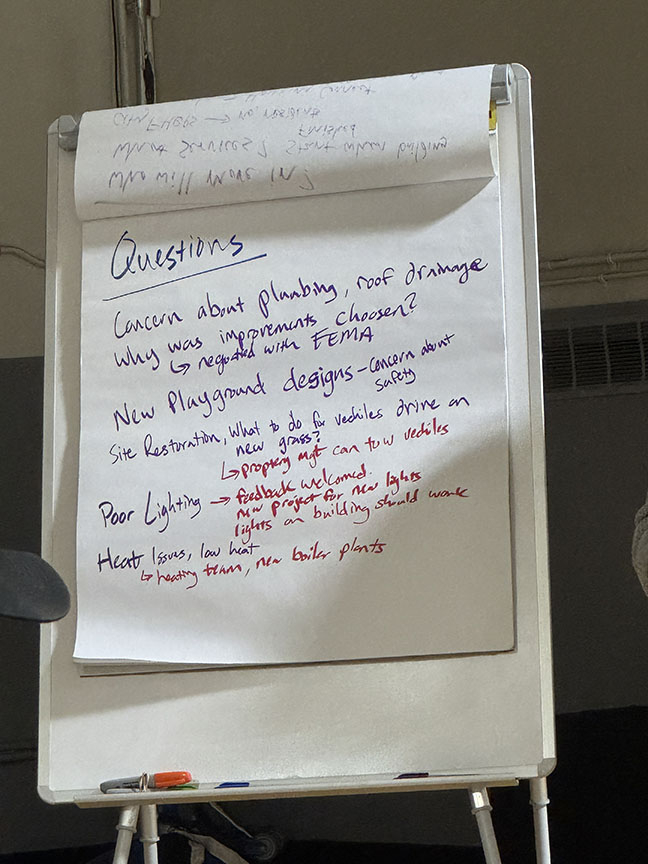 Who will move in?
What services? Start when building
finished
Questions
Concern about plumbing, roof drainage
Why was improvements choosen?
↳ negotiated with FEMA
New Playground designs – concern about
safety
Site Restoration, What to do for vechiles drive on
new grass?
↳ property mgt can tow vechiles
Poor Lighting → feedback welcomed.
new project for new lights
lights on building should work
Heat Issues, low heat
↳ heating team, new boiler plants